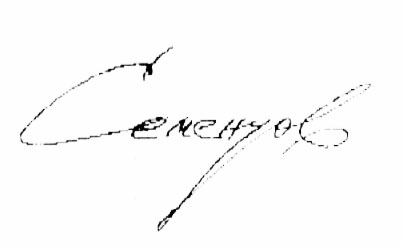 Семенцов